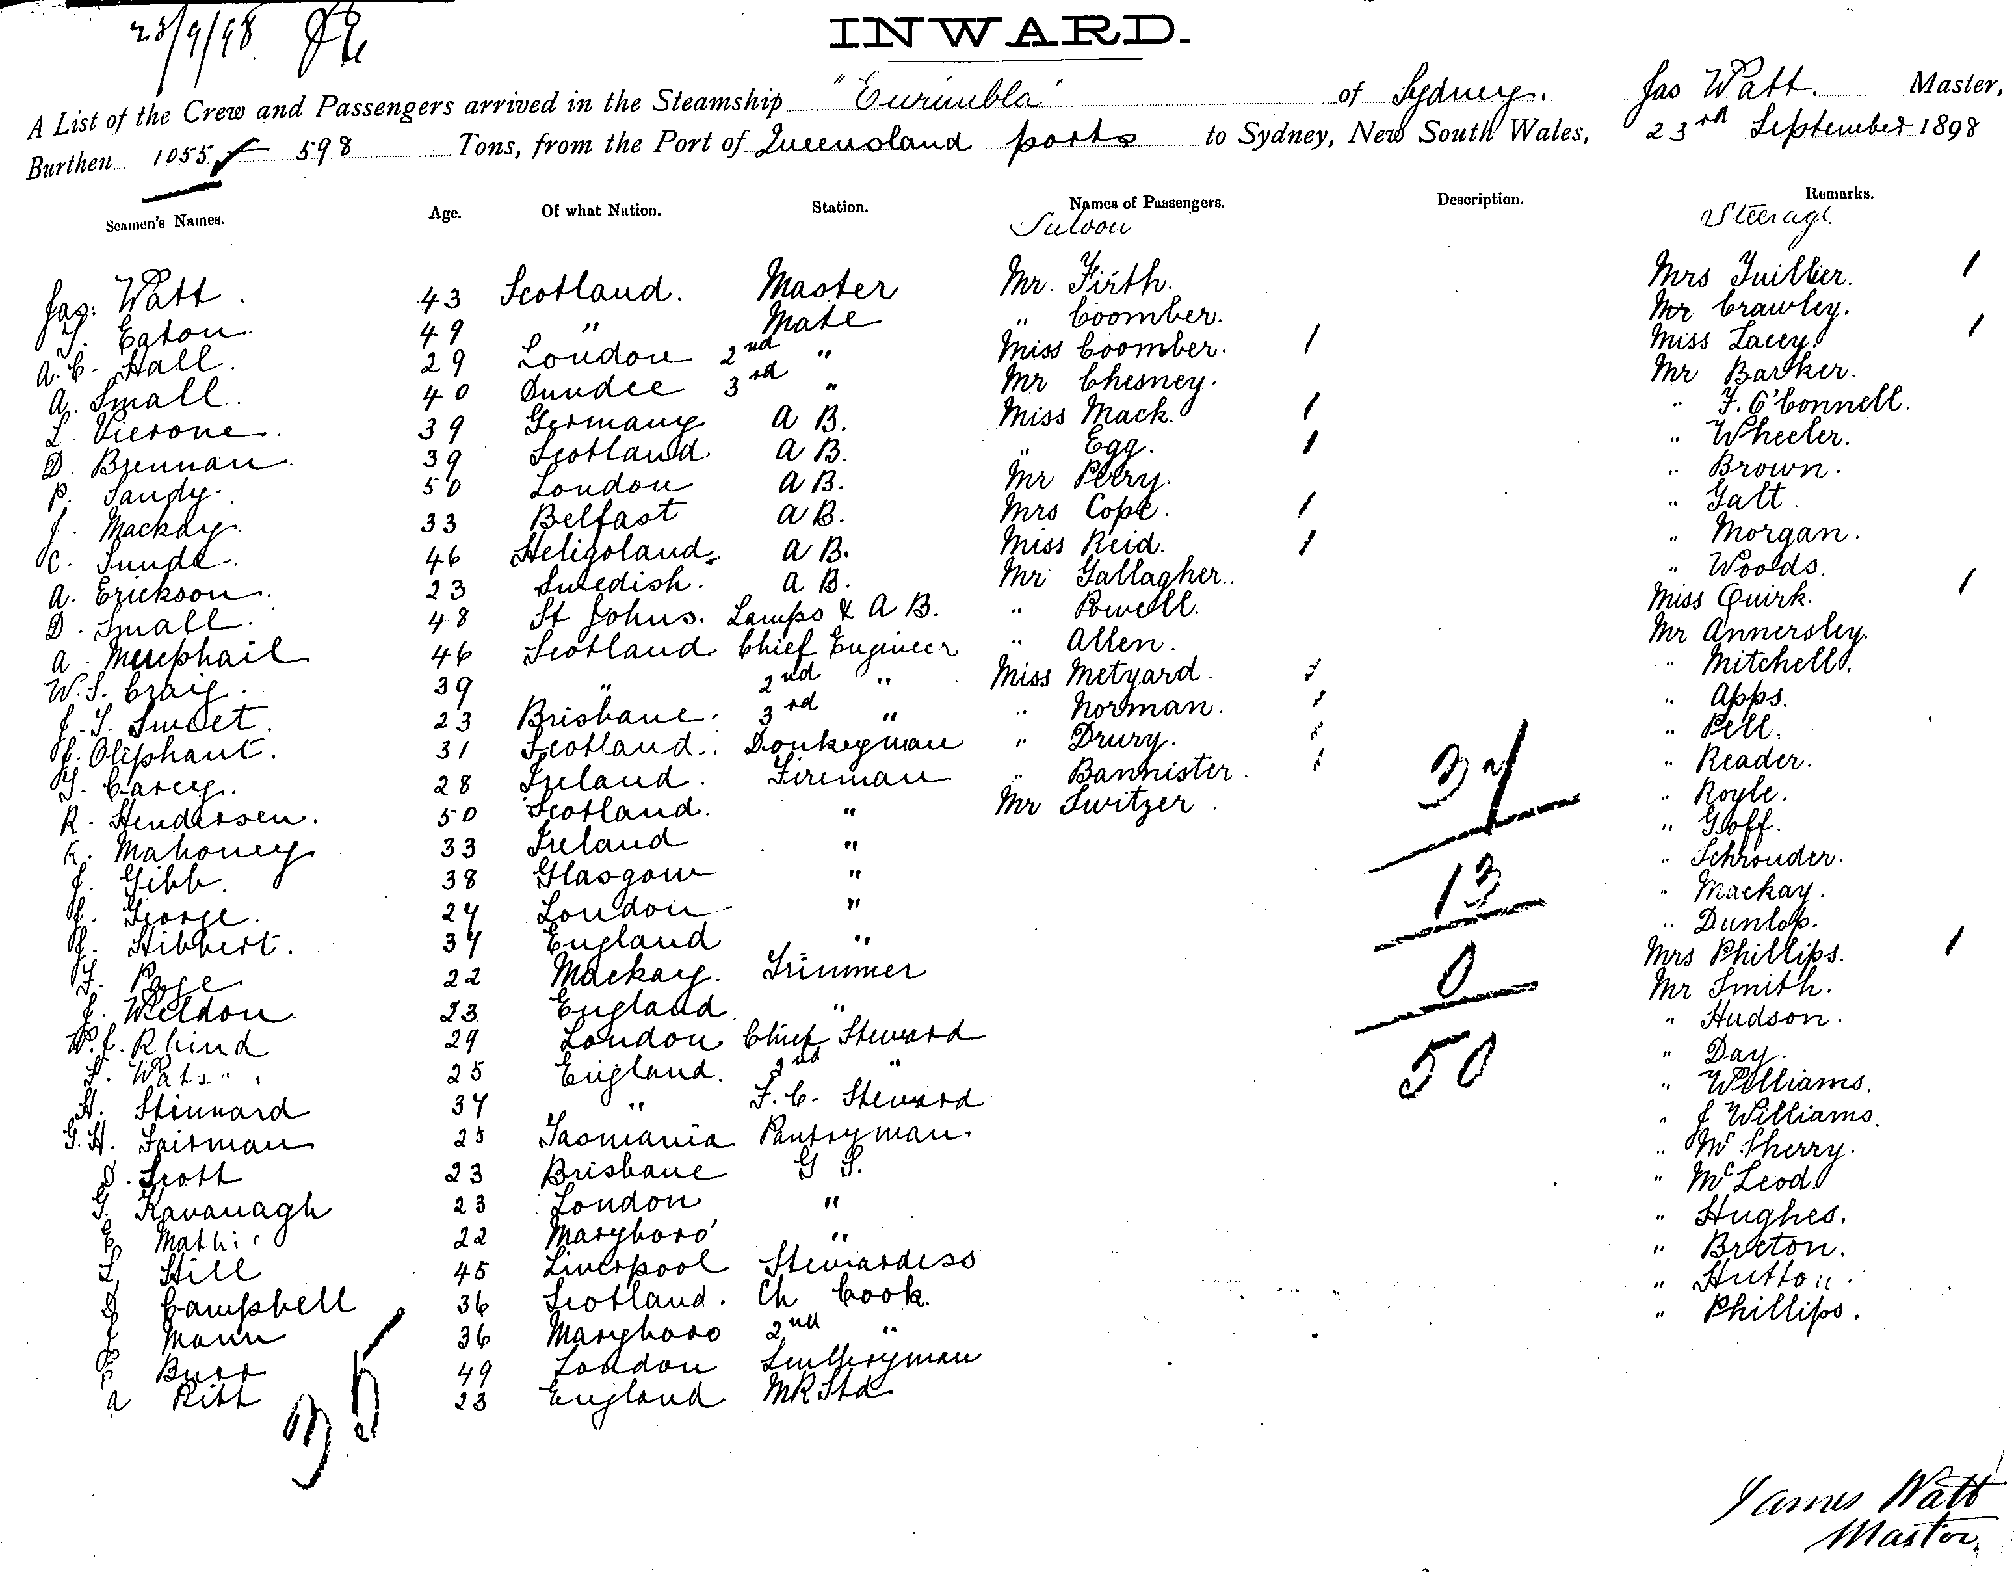 23/9/98
INWARD.
A List of the Crew and Passengers arrived in the Steamship "Eurimbla" of Sydney. Jas Watt. Master,
Burthen 1055 598 Tons, from the Port of Queensland ports to Sydney, New South Wales, 23rd September 1898
Seamen's Names. Age. Of what Nation. Station. Names of Passengers. Description. Remarks.
Saloon Steerage
Jas. Watt. 43 Scotland. Master Mr. Firth. Mrs Tuillier. 1
T. Eaton. 49 " Mate " Coomber. Mr Crawley.
A. C. Hall. 29 London 2nd " Miss Coomber. 1 Miss Lacey. 1
A. Small. 40 Dundee 3rd " Mr Chesney. Mr Barker.
L. Vierone. 39 Germany A B. Miss Mack. 1 " F. O'Connell.
D. Brennan. 39 Scotland A B. " Egg. 1 " Wheeler.
P. Sandy. 50 London A B. Mr Perry. " Brown.
J. Mackay. 33 Belfast A B. Mrs Cope. 1 " Galt.
C. Sunde. 46 Heligoland. A B. Miss Reid. 1 " Morgan.
A. Erickson. 23 Swedish. A B. Mr Gallagher. " Woods.
D. Small. 48 St Johns. Lamps & A B. " Powell. Miss Quirk. 1
A. McPhail 46 Scotland Chief Engineer " Allen. Mr Annersley.
W. S. Craig. 39 " 2nd " Miss Metyard. 1 " Mitchell.
J. S. Sweet. 23 Brisbane. 3rd " " Norman. 1 " Apps.
Oliphant. 31 Scotland. Donkeyman " Drury. 1 " Pell.
T. Carey. 28 Ireland. Fireman " Bannister. 1 " Reader.
R. Hendersen. 50 Scotland. " Mr Switzer. " Royle.
Mahoney 33 Ireland " " Goff.
J. Gibb. 38 Glasgow " " Schrouder.
George. 27 London " " Mackay.
Hibbert. 37 England " " Dunlop.
F. Page 22 Mackay. Trimmer Mrs Phillips. 1
J. Weldon 23 England. " Mr Smith.
W. J. Rhind 29 London Chief Steward " Hudson.
25 England. 2nd " " Day.
H. Stinnard 37 " F. C. Steward " Williams.
G. H. Fairman 25 Tasmania Pantryman. " J Williams.
D. Scott 23 Brisbane G S. " McSherry.
G. Kavanagh 23 London " " McLeod.
E 22 Maryboro' " " Hughes.
L Hill 45 Liverpool Stewardess " Breton.
D Campbell 36 Scotland. Ch Cook. " Hutton.
J Mann 36 Maryboro 2nd " " Phillips.
Burr 49 London Sculleryman
A Ritt 23 England M R Std
35
37
13
0
50
James Watt
Master.